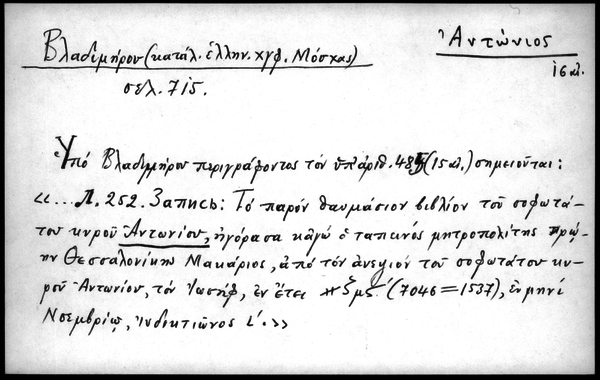 Βλαδιμήρου (κατάλ. ἑλλην. χγφ. Μόσχας)
σελ. 715.
Ἀντώνιος
16 αἰ.
Ὑπό Βλαδιμήρου περιγράφοντος τόν ὑπ' ἀριθ. 485 (15 αἰ.) σημειοῦται:
«... Л. 252. Запись: Τό παρόν θαυμάσιον βιβλίον τοῦ σοφωτά-
του κυροῦ Ἀντωνίου, ἠγόρασα κἀγώ ὁ ταπεινός μητροπολίτης πρώ-
ην Θεσσαλονίκης Μακάριος, ἀπό τόν ἀνεψιόν τοῦ σοφωτάτου κυ-
ροῦ Ἀντωνίου, τόν Ἰωσήφ, ἐν ἔτει ͵ζμϛ΄ (7046=1537), ἐν μηνί
Νοεμβρίῳ, ἰνδικτιῶνος ι΄.»